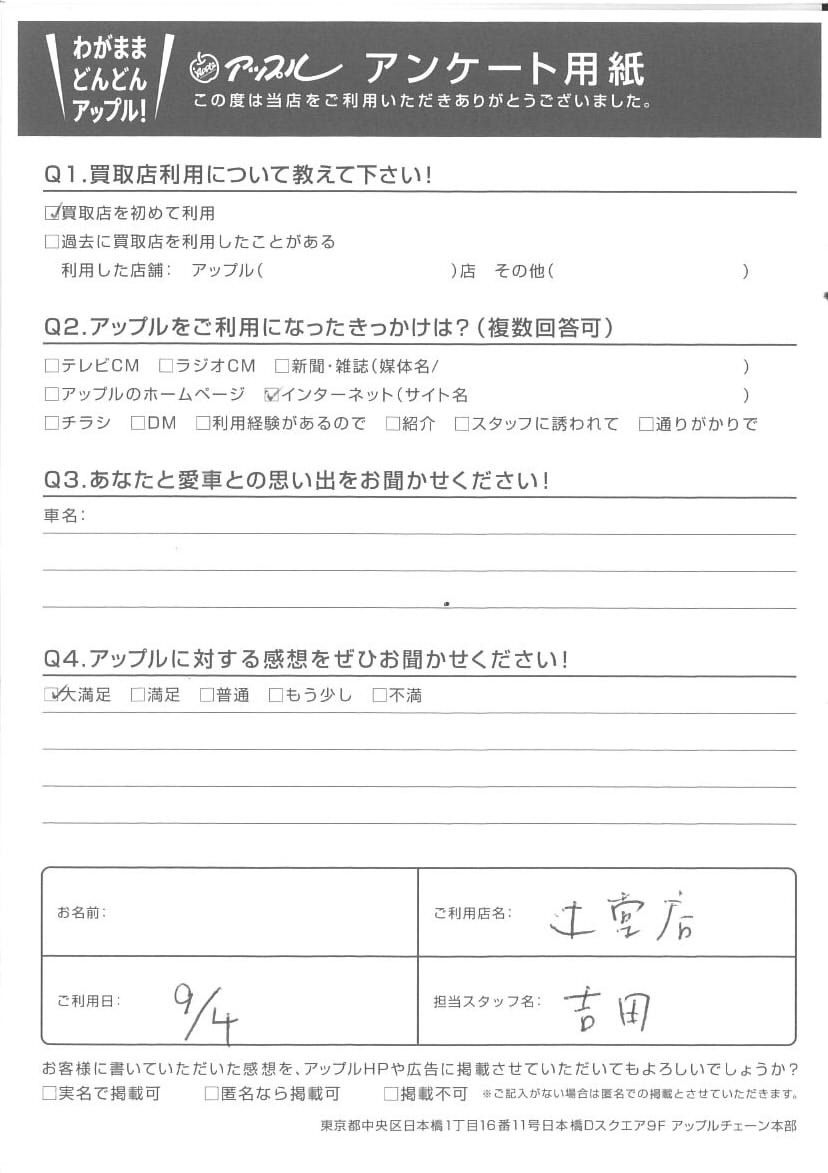 わがまま
どんどん
アップル!
Apple アップル アンケート用紙
この度は当店をご利用いただきありがとうございました。
Q1.買取店利用について教えて下さい!
☑買取店を初めて利用
□過去に買取店を利用したことがある
利用した店舗: アップル( )店 その他( )
Q2.アップルをご利用になったきっかけは?(複数回答可)
□テレビCM □ラジオCM □新聞・雑誌(媒体名/ )
□アップルのホームページ ☑インターネット(サイト名 )
□チラシ □DM □利用経験があるので □紹介 □スタッフに誘われて □通りがかりで
Q3.あなたと愛車との思い出をお聞かせください!
車名:
Q4.アップルに対する感想をぜひお聞かせください!
☑大満足 □満足 □普通 □もう少し □不満
お名前:
ご利用店名: 辻堂店
ご利用日: 9/4
担当スタッフ名: 吉田
お客様に書いていただいた感想を、アップルHPや広告に掲載させていただいてもよろしいでしょうか?
□実名で掲載可 □匿名なら掲載可 □掲載不可 ※ご記入がない場合は匿名での掲載とさせていただきます。
東京都中央区日本橋1丁目16番11号日本橋Dスクエア9F アップルチェーン本部